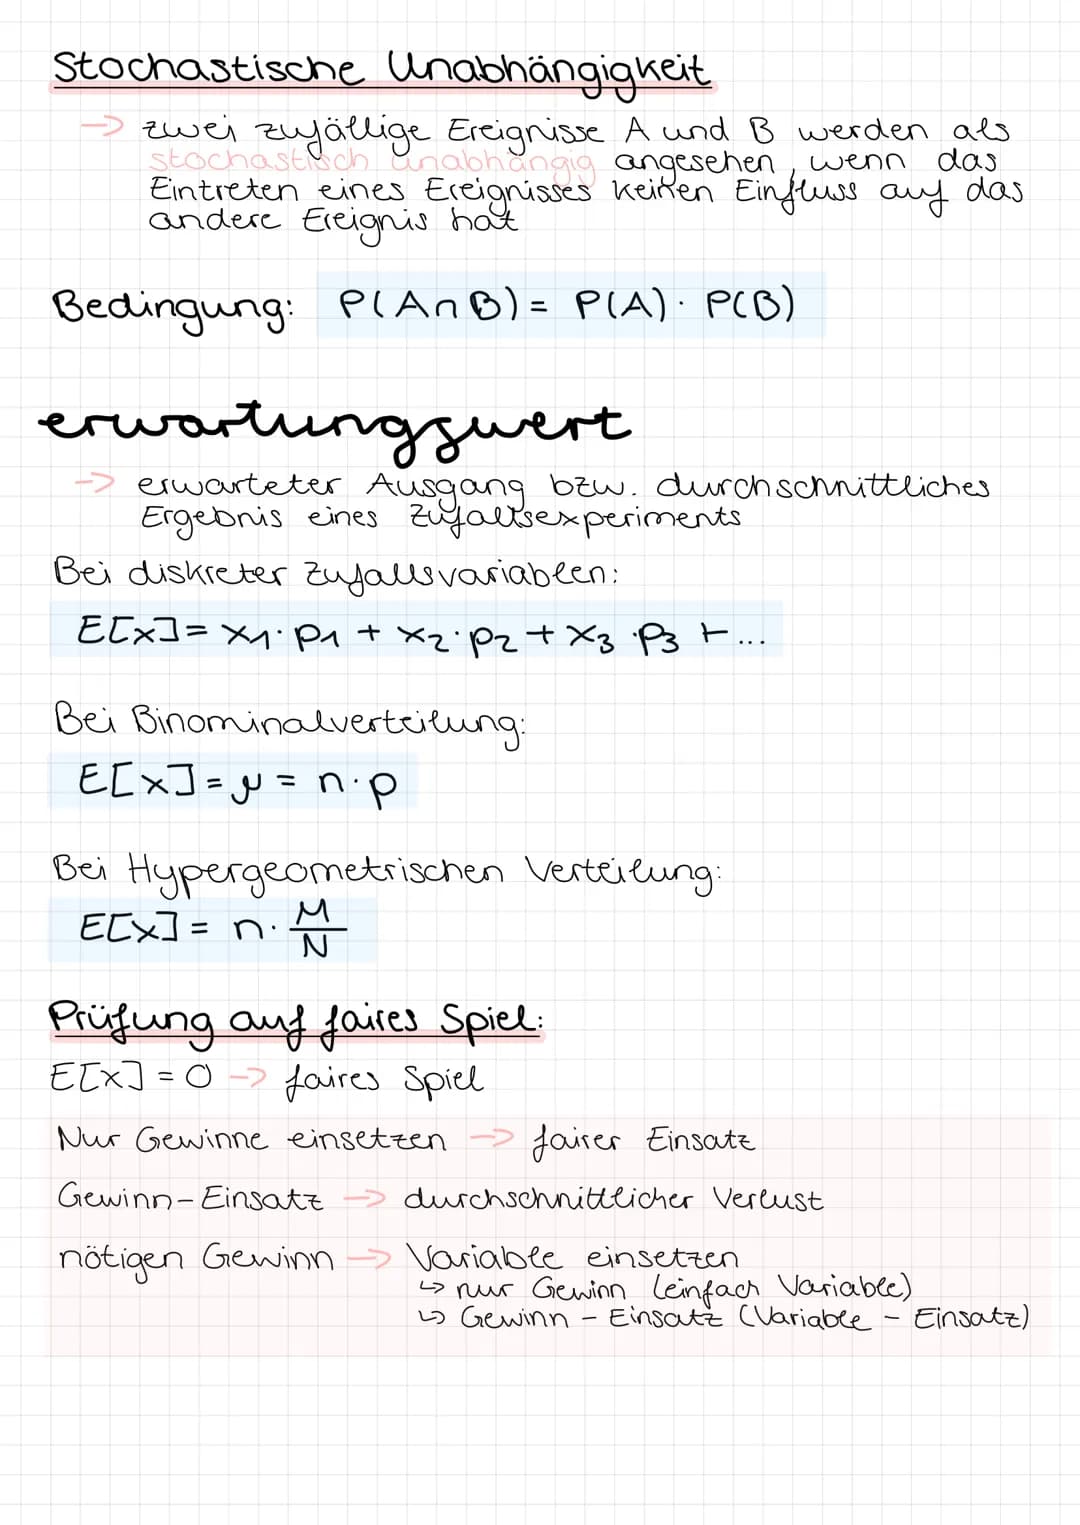 Stochastische Unabhängigkeit
-> zwei zufällige Ereignisse A und B werden als
stochastisch unabhängig angesehen, wenn das
Eintreten eines Ereignisses keinen Einfluss auf das
andere Ereignis hat
Bedingung: P(A∩B) = P(A) · P(B)
erwartungswert
-> erwarteter Ausgang bzw. durchschnittliches
Ergebnis eines Zufallsexperiments
Bei diskreter Zufallsvariablen:
E[x] = x₁ · p₁ + x₂ · p₂ + x₃ · p₃ + ...
Bei Binominalverteilung:
E[x] = μ = n · p
Bei Hypergeometrischen Verteilung:
E[x] = n · M/N
Prüfung auf faires Spiel:
E[x] = 0 -> faires Spiel
Nur Gewinne einsetzen -> fairer Einsatz
Gewinn - Einsatz -> durchschnittlicher Verlust
nötigen Gewinn -> Variable einsetzen
↳ nur Gewinn (einfach Variable)
↳ Gewinn - Einsatz (Variable - Einsatz)